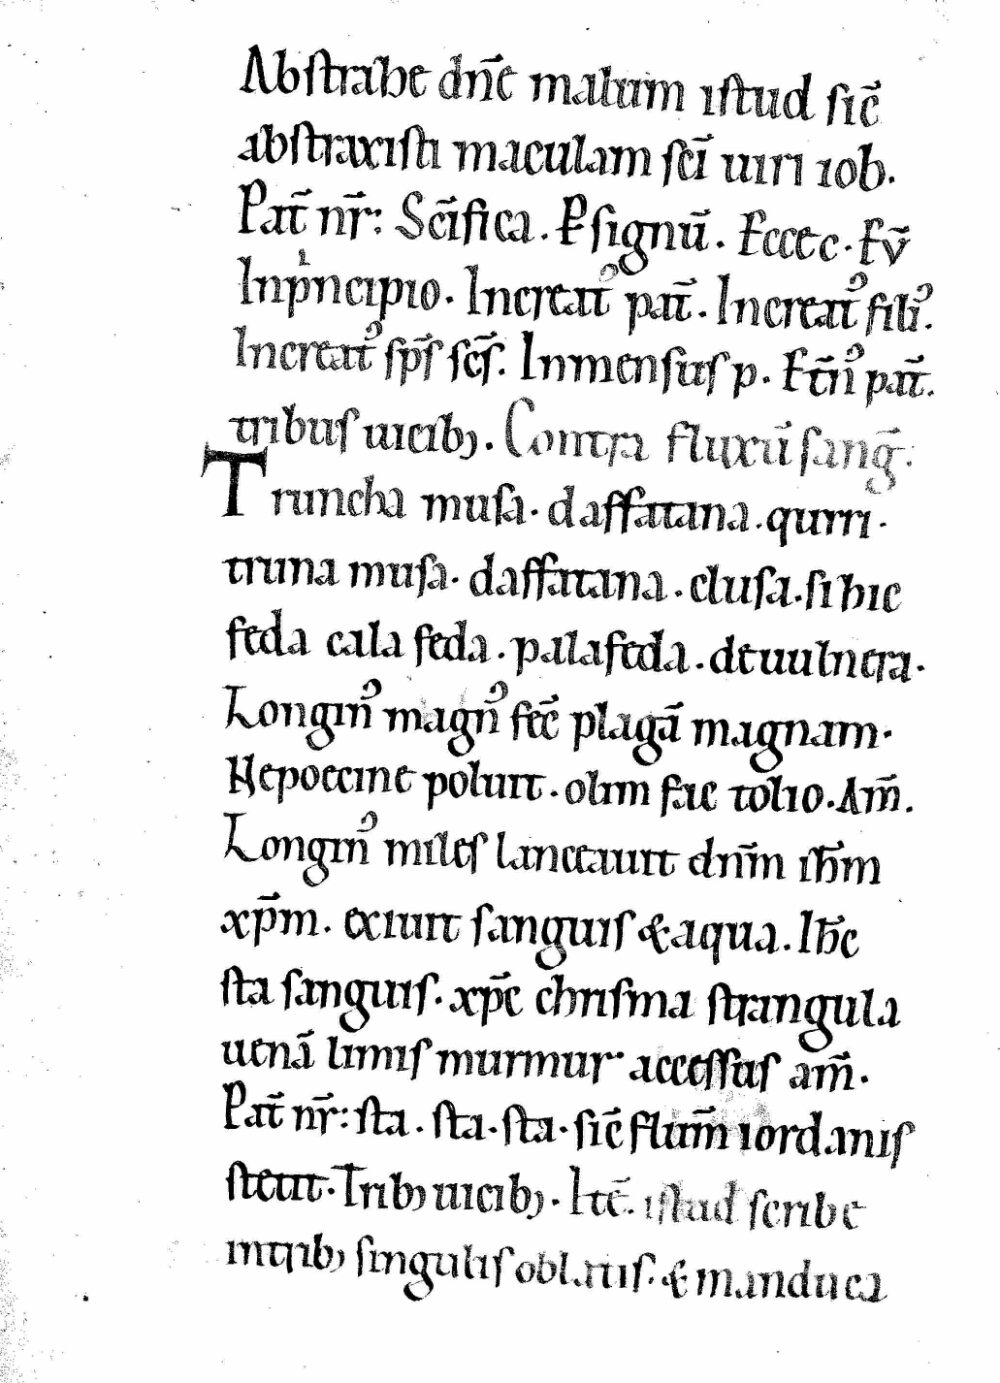 Abstrahe dñe malum istud sic̄
abstraxisti maculam sc̄i uiri iob.
Pat̄ nr̄: Sc̄ifica. P signū. Eccec. Ev̄
Inpͥncipio. Increatꝰ pat̄. Increatꝰ filiꝰ.
Increatꝰ sp̄s sc̄s. Inmensus p. Et̄nꝰ pat̄.
tribus uicibꝫ. Contra fluxū sanḡ.
Truncha musa. daffatana. qurri.
truna musa. daffatana. clusa. si hic
feda cala feda. palafeda. deuulnera.
Longinꝰ magnꝰ fec̄ plagā magnam.
Hepoecine poluit. olim fac tolio. Am̄.
Longinꝰ miles lanceauit dn̄m ih̄m
xp̄m. exiuit sanguis & aqua. Ih̄c
sta sanguis. xp̄c chrisma strangula
uenā limis murmur accessus am̄.
Pat̄ nr̄: sta. sta. sta. sic̄ flum̄ iordanis
stetit. Tribꝫ uicibꝫ. Itē. istud scribe
intribꝫ singulis oblatis. & manduca